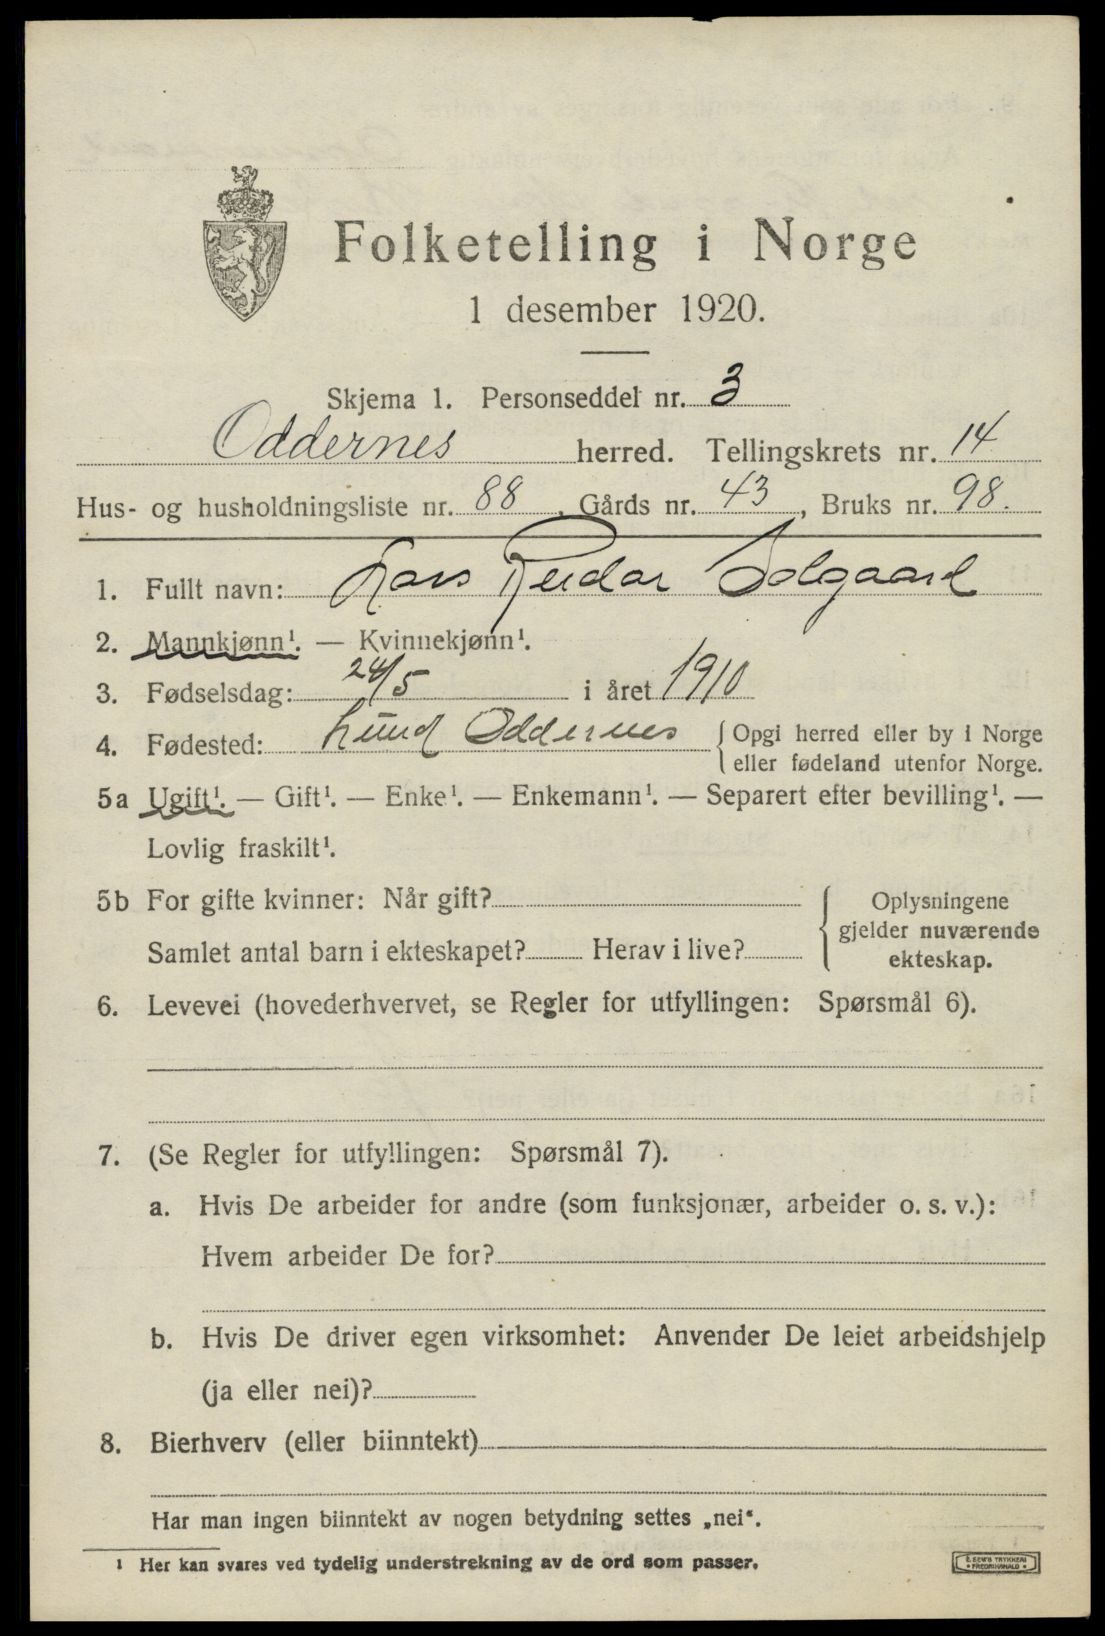 Folketelling i Norge
1 desember 1920.
Skjema 1. Personseddel nr. 3
Oddernes herred. Tellingskrets nr. 14
Hus- og husholdningsliste nr. 88, Gårds nr. 43, Bruks nr. 98.
1. Fullt navn: Lars Reidar Solgaard
2. Mannkjønn¹. — Kvinnekjønn¹.
3. Fødselsdag: 24/5 i året 1910
4. Fødested: Lund Oddernes { Opgi herred eller by i Norge
eller fødeland utenfor Norge.
5a Ugift¹. — Gift¹. — Enke¹. — Enkemann¹. — Separert efter bevilling¹. —
Lovlig fraskilt¹.
5b For gifte kvinner: Når gift?
Samlet antal barn i ekteskapet? Herav i live?
{ Oplysningene
gjelder nuværende
ekteskap.
6. Levevei (hovederhvervet, se Regler for utfyllingen: Spørsmål 6).
7. (Se Regler for utfyllingen: Spørsmål 7).
a. Hvis De arbeider for andre (som funksjonær, arbeider o. s. v.):
Hvem arbeider De for?
b. Hvis De driver egen virksomhet: Anvender De leiet arbeidshjelp
(ja eller nei)?
8. Bierhverv (eller biinntekt)
Har man ingen biinntekt av nogen betydning settes „nei“.
¹ Her kan svares ved tydelig understrekning av de ord som passer.